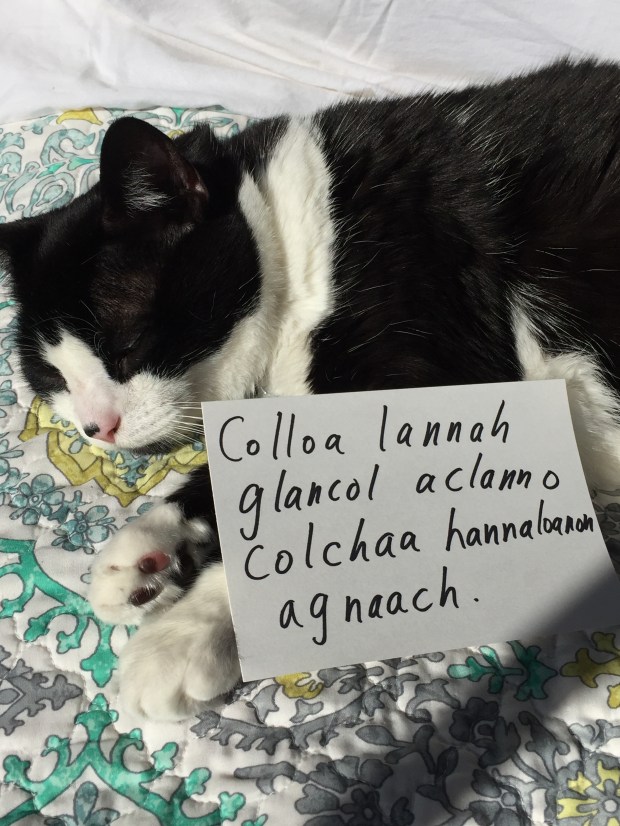 Colloa lannah
glancol aclanno
Colchaa hannaloanon
agnaach.